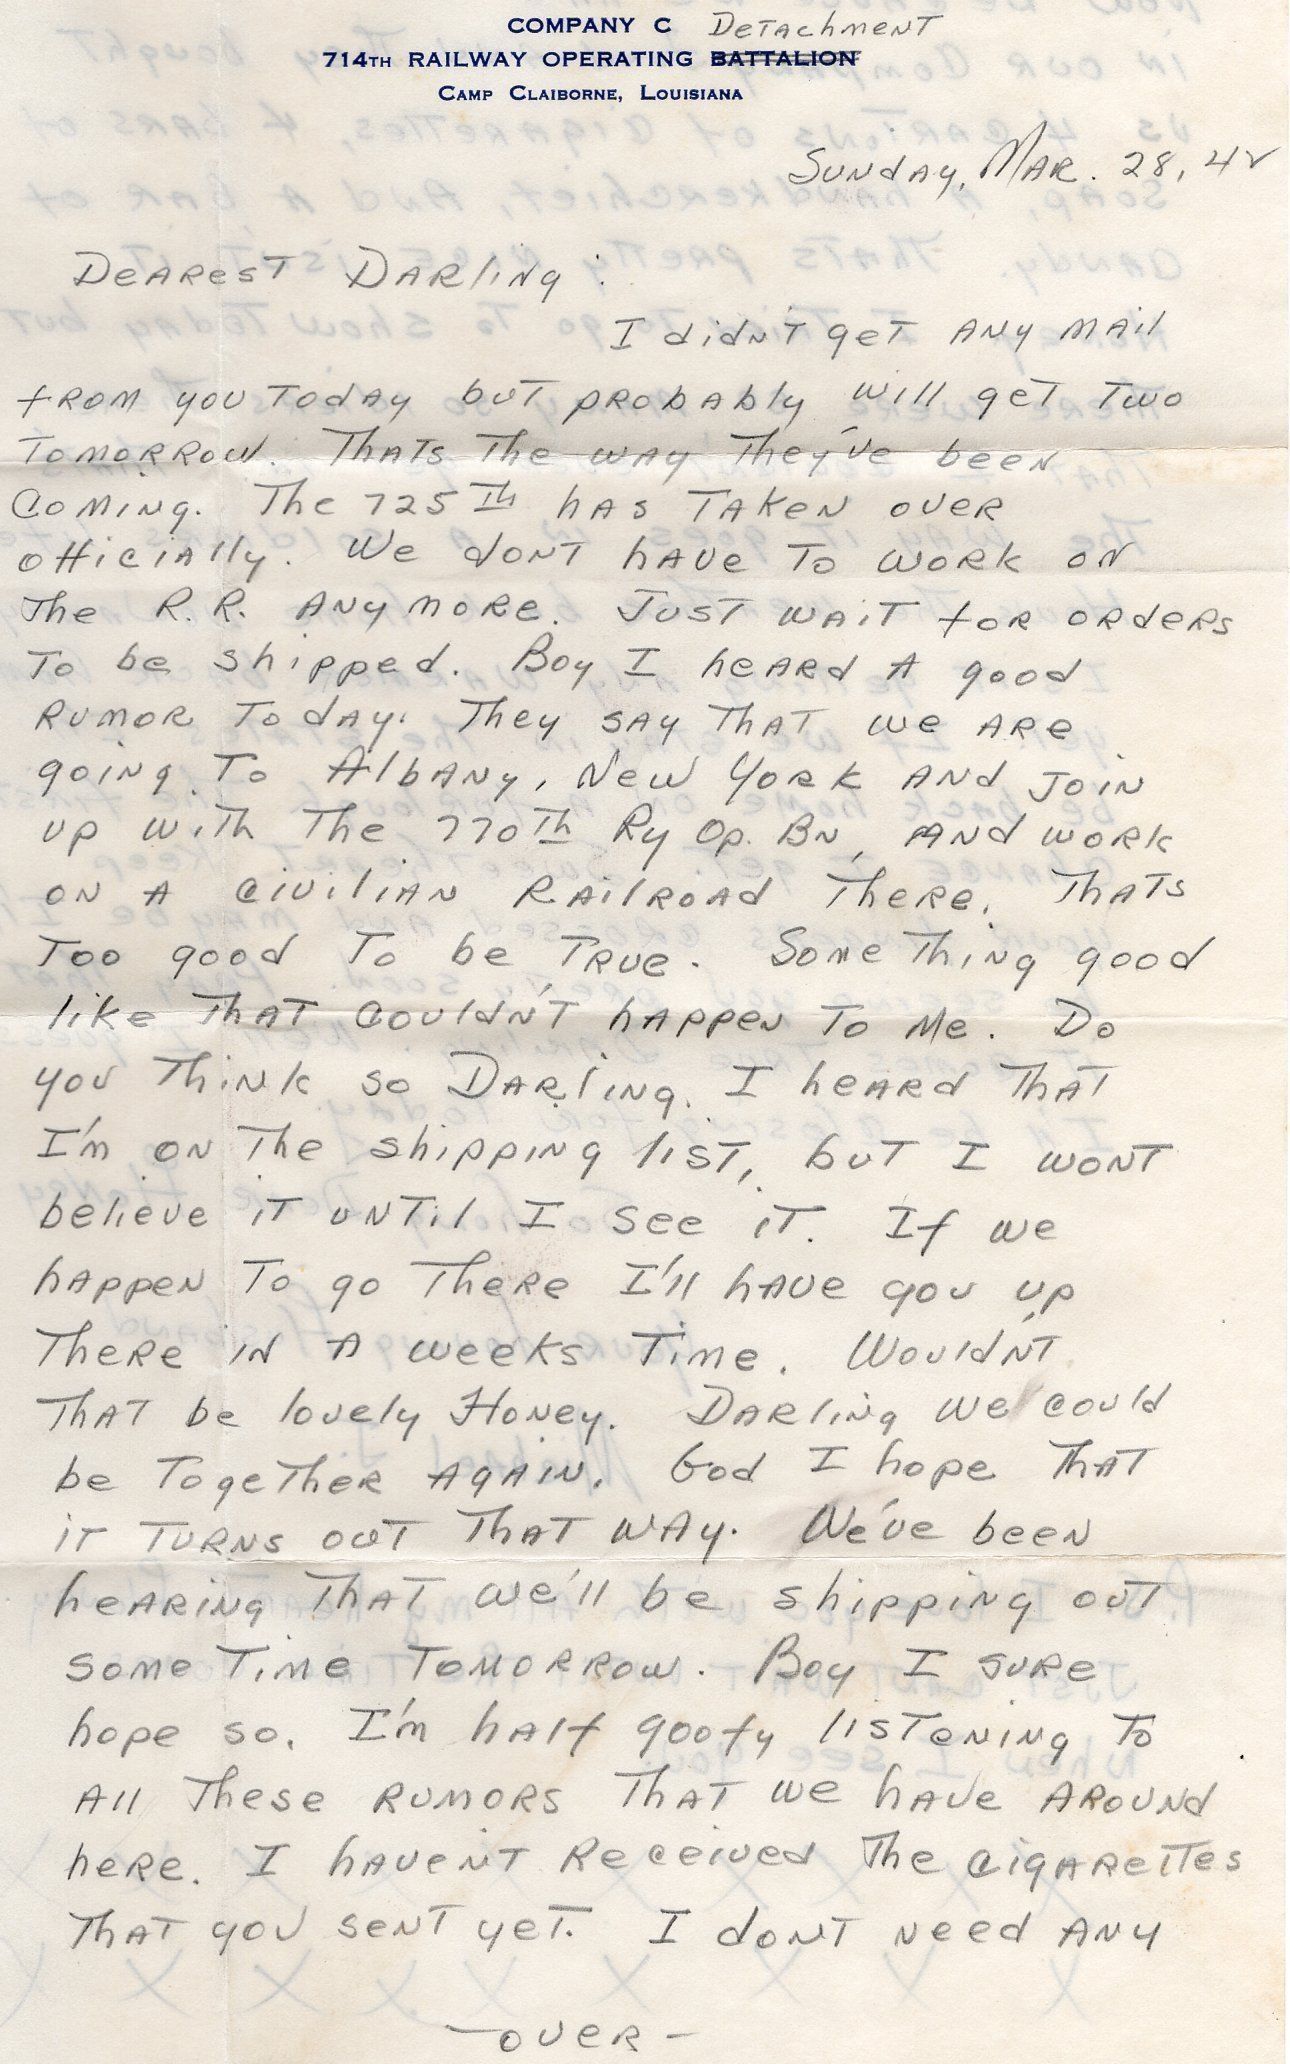 COMPANY C Detachment
714TH RAILWAY OPERATING BATTALION
CAMP CLAIBORNE, LOUISIANA
Sunday, Mar. 28, 42
Dearest Darling:
I didn't get any mail
from you today but probably will get two
tomorrow. Thats the way they've been
coming. The 725th has taken over
officially. We dont have to work on
the R.R. anymore. Just wait for orders
to be shipped. Boy I heard a good
rumor today. They say that we are
going to Albany, New York and join
up with the 770th Ry Op. Bn, and work
on a civilian Railroad there. Thats
too good to be true. Something good
like that couldn't happen to me. Do
you think so Darling. I heard that
I'm on the shipping list, but I wont
believe it until I see it. If we
happen to go there I'll have you up
there in a weeks time. Wouldn't
that be lovely Honey. Darling we could
be together again. God I hope that
it turns out that way. We've been
hearing that we'll be shipping out
some time tomorrow. Boy I sure
hope so. I'm half goofy listening to
all these rumors that we have around
here. I haven't received the cigarettes
that you sent yet. I dont need any
—over—